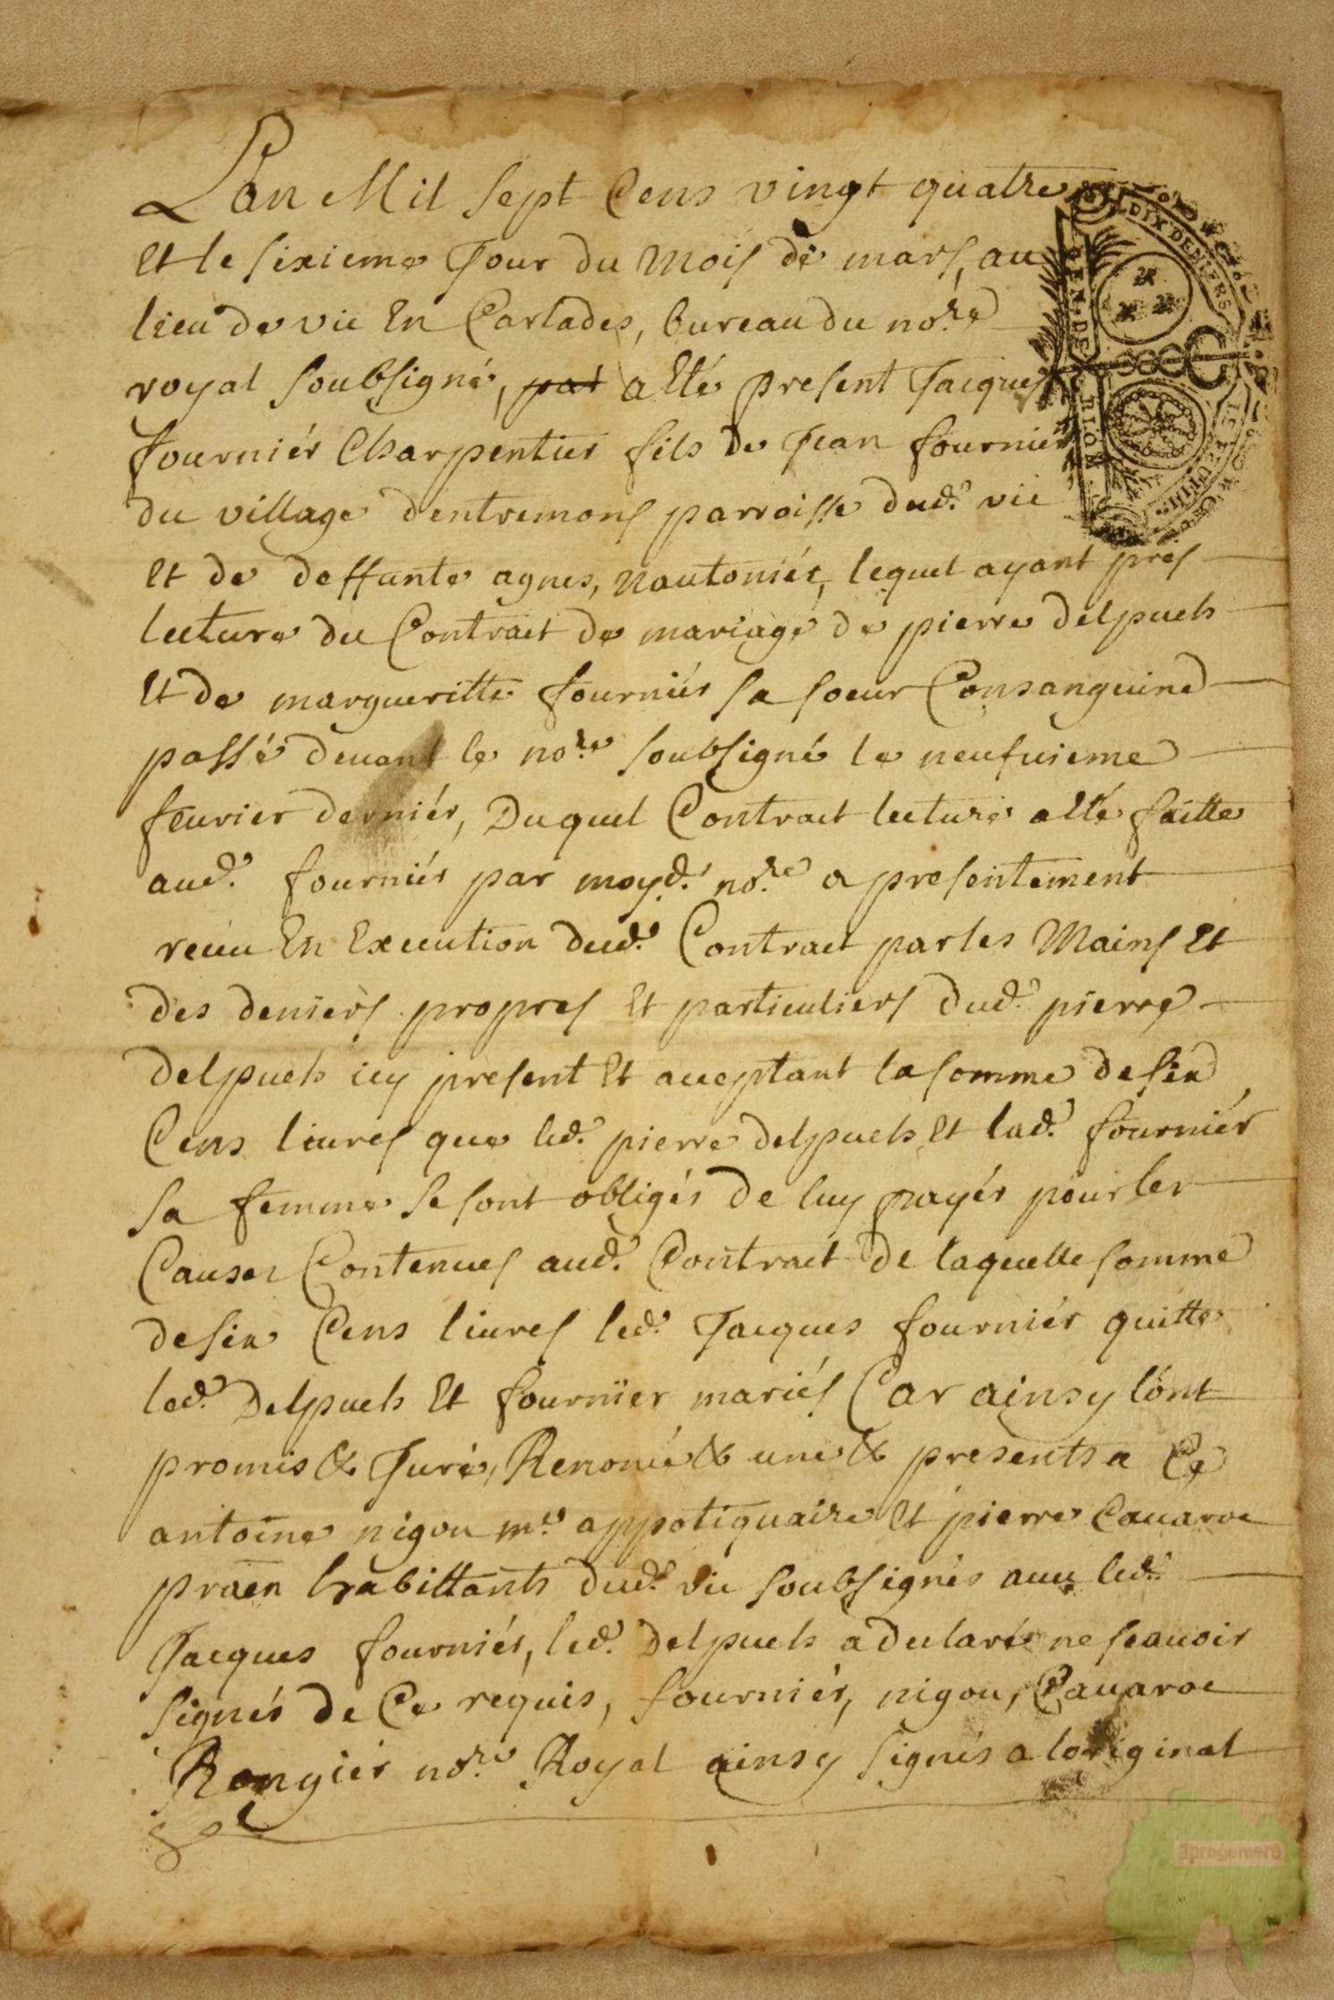 Lan Mil sept Cens vingt quatre
Et le sixieme Jour du Mois de mars, au
lieu de vic En Carlades, bureau du no.re
royal soubsigné, par a Eté present Jacques
fourniér Charpentier fils de Jean fournier
du village dentremons parroisse dud. vic
Et de deffunte agnes, nautoniér, lequel ayant pres
lecture du Contract de mariage de pierre delpuech
Et de margueritte fourniér sa soeur Consanguine
passé devant le no.re soubsigné le neufuieme
feurier derniér, Duquel Contract lecture a Eté faitte
aud. fourniér par moyd. no.re a presentement
receu En Execution dud. Contract par les Mains Et
des deniers propres Et particuliers dud. pierre
delpuech icy present Et acceptant la somme de six
Cens liures que led. pierre delpuech Et lad. fourniér
sa femme se sont obligés de luy payér pour les
Causes Contenues aud. Contract de laquelle somme
de six Cens liures led. Jacques fourniér quitte
led. Delpuech Et fournier mariés Car ainsy lont
promis & Juré, Renoncé & une & presents a Ce
antoine nigou m.e appotiquaire Et pierre Cavaroc
praēn habittants dud. vic soubsignés avec led.
Jacques fourniér, led. Delpuech a declaré ne scauoir
signér de Ce requis, fourniér, nigou, Cavaroc
Rongiér no.re Royal ainsy signés a loriginal
GEN. DE
RIOM
DIX DENIERS
LE FEUILLE
aprogemere